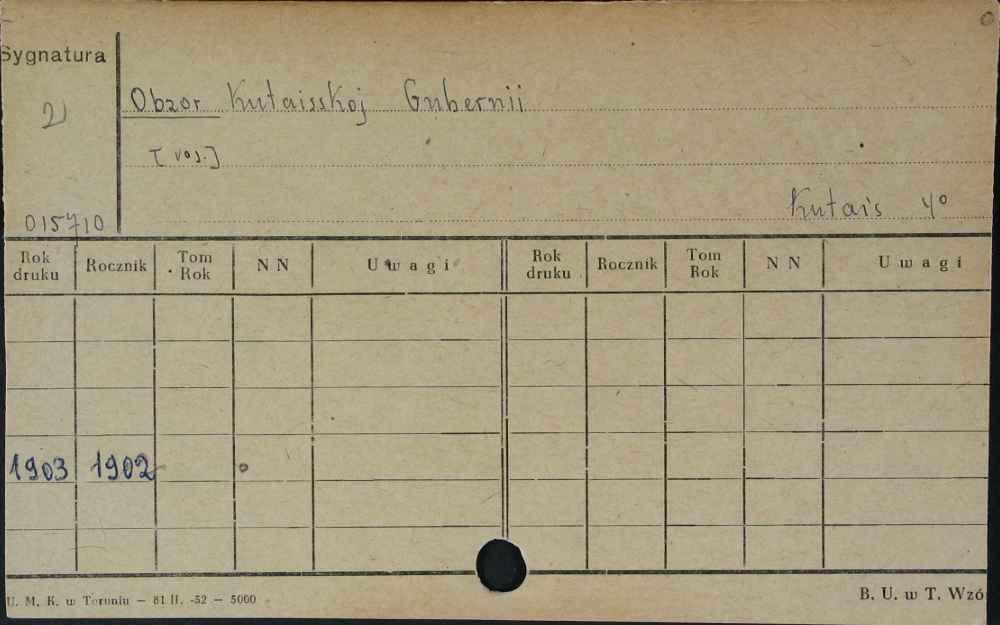 Sygnatura
2)
Obzor Kutaisskoj Gubernii
[ros.]
Kutais 4°
015710
Rok druku Rocznik Tom Rok N N Uwagi Rok druku Rocznik Tom Rok N N Uwagi
1903 1902
U. M. K. w Toruniu — 81 II. -52 — 5000
B. U. w T. Wzó